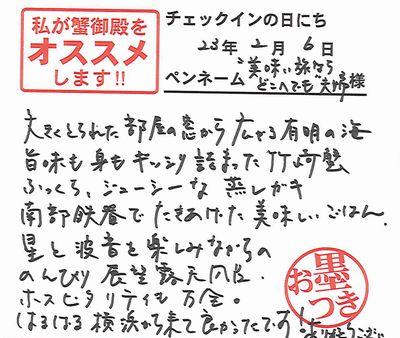 私が蟹御殿を
オススメ
します!!
チェックインの日にち
23年 2月 6日
ペンネーム "美味い旅なら
どこへでも"夫婦様
大きくとられた部屋の窓から広がる有明の海
旨味も身もギッシリ詰まった竹崎蟹
ふっくら、ジューシーな蒸しガキ
南部鉄釜でたきあげた美味しいごはん、
星と波音を楽しみながらの
のんびり展望露天風呂.
ホスピタリティも万全。
はるばる横浜から来て良かったです!
お墨つき